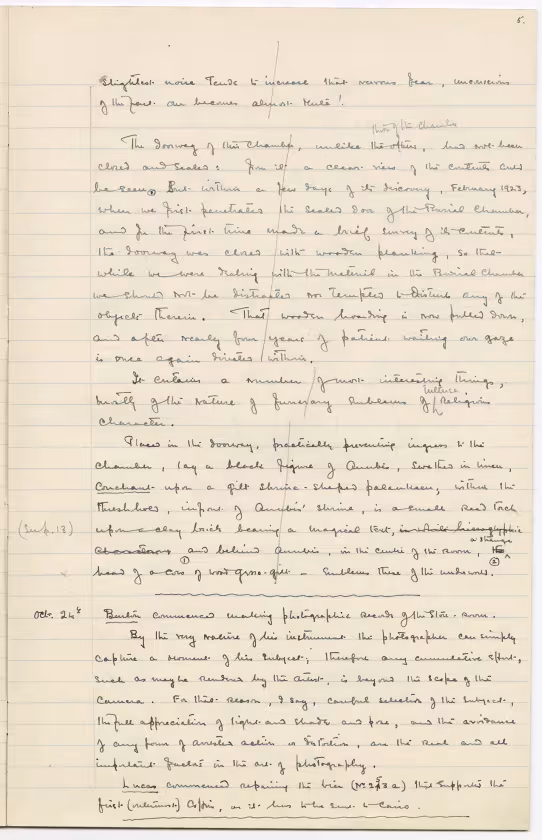 5.
slightest noise tends to increase that nervous fear, unconscious
of the fact one becomes almost mute!
this of the Chamber
The doorway of this chamber, unlike the others, has not been
closed and sealed: from it a clear view of the contents could
be seen. But within a few days of its discovery, February 1923,
when we first penetrated the sealed door of the Burial Chamber,
and for the first time made a brief survey of its contents,
the doorway was closed with wooden planking, so that
while we were dealing with the material in the Burial Chamber
we should not be distracted nor tempted to disturb any of the
objects therein. That wooden boarding is now pulled down,
and after nearly four years of patient waiting our gaze
is once again directed within.
It contains a number of most interesting things,
mostly of the nature of funerary emblems of religious
character.
Placed in the doorway, practically preventing ingress to the
chamber, lay a black figure of Anubis, swathed in linen,
couchant upon a gilt shrine-shaped palanquin; within the
threshold, in front of Anubis' shrine, is a small reed torch
(Sup. 13) upon a clay brick bearing a magical text, in which hieroglyphic
a strange
characters ① and behind Anubis, in the centre of the room, the
②
head of a cow of wood gesso-gilt – emblems these of the underworld.
Oct. 24th Burton commenced making photographic records of the Store-room.
By the very nature of his instrument the photographer can simply
capture a moment of his subject; therefore any cumulative effort,
such as may be rendered by the artist, is beyond the scope of the
camera. For that reason, I say, careful selection of the subject,
the full appreciation of light and shade and pose, and the avoidance
of any form of arrested action or distortion, are the real and all
important factors in the art of photography.
Lucas commenced repairing the bier (No. 253 a) that supported the
first (outermost) coffin, as it has to be sent to Cairo.